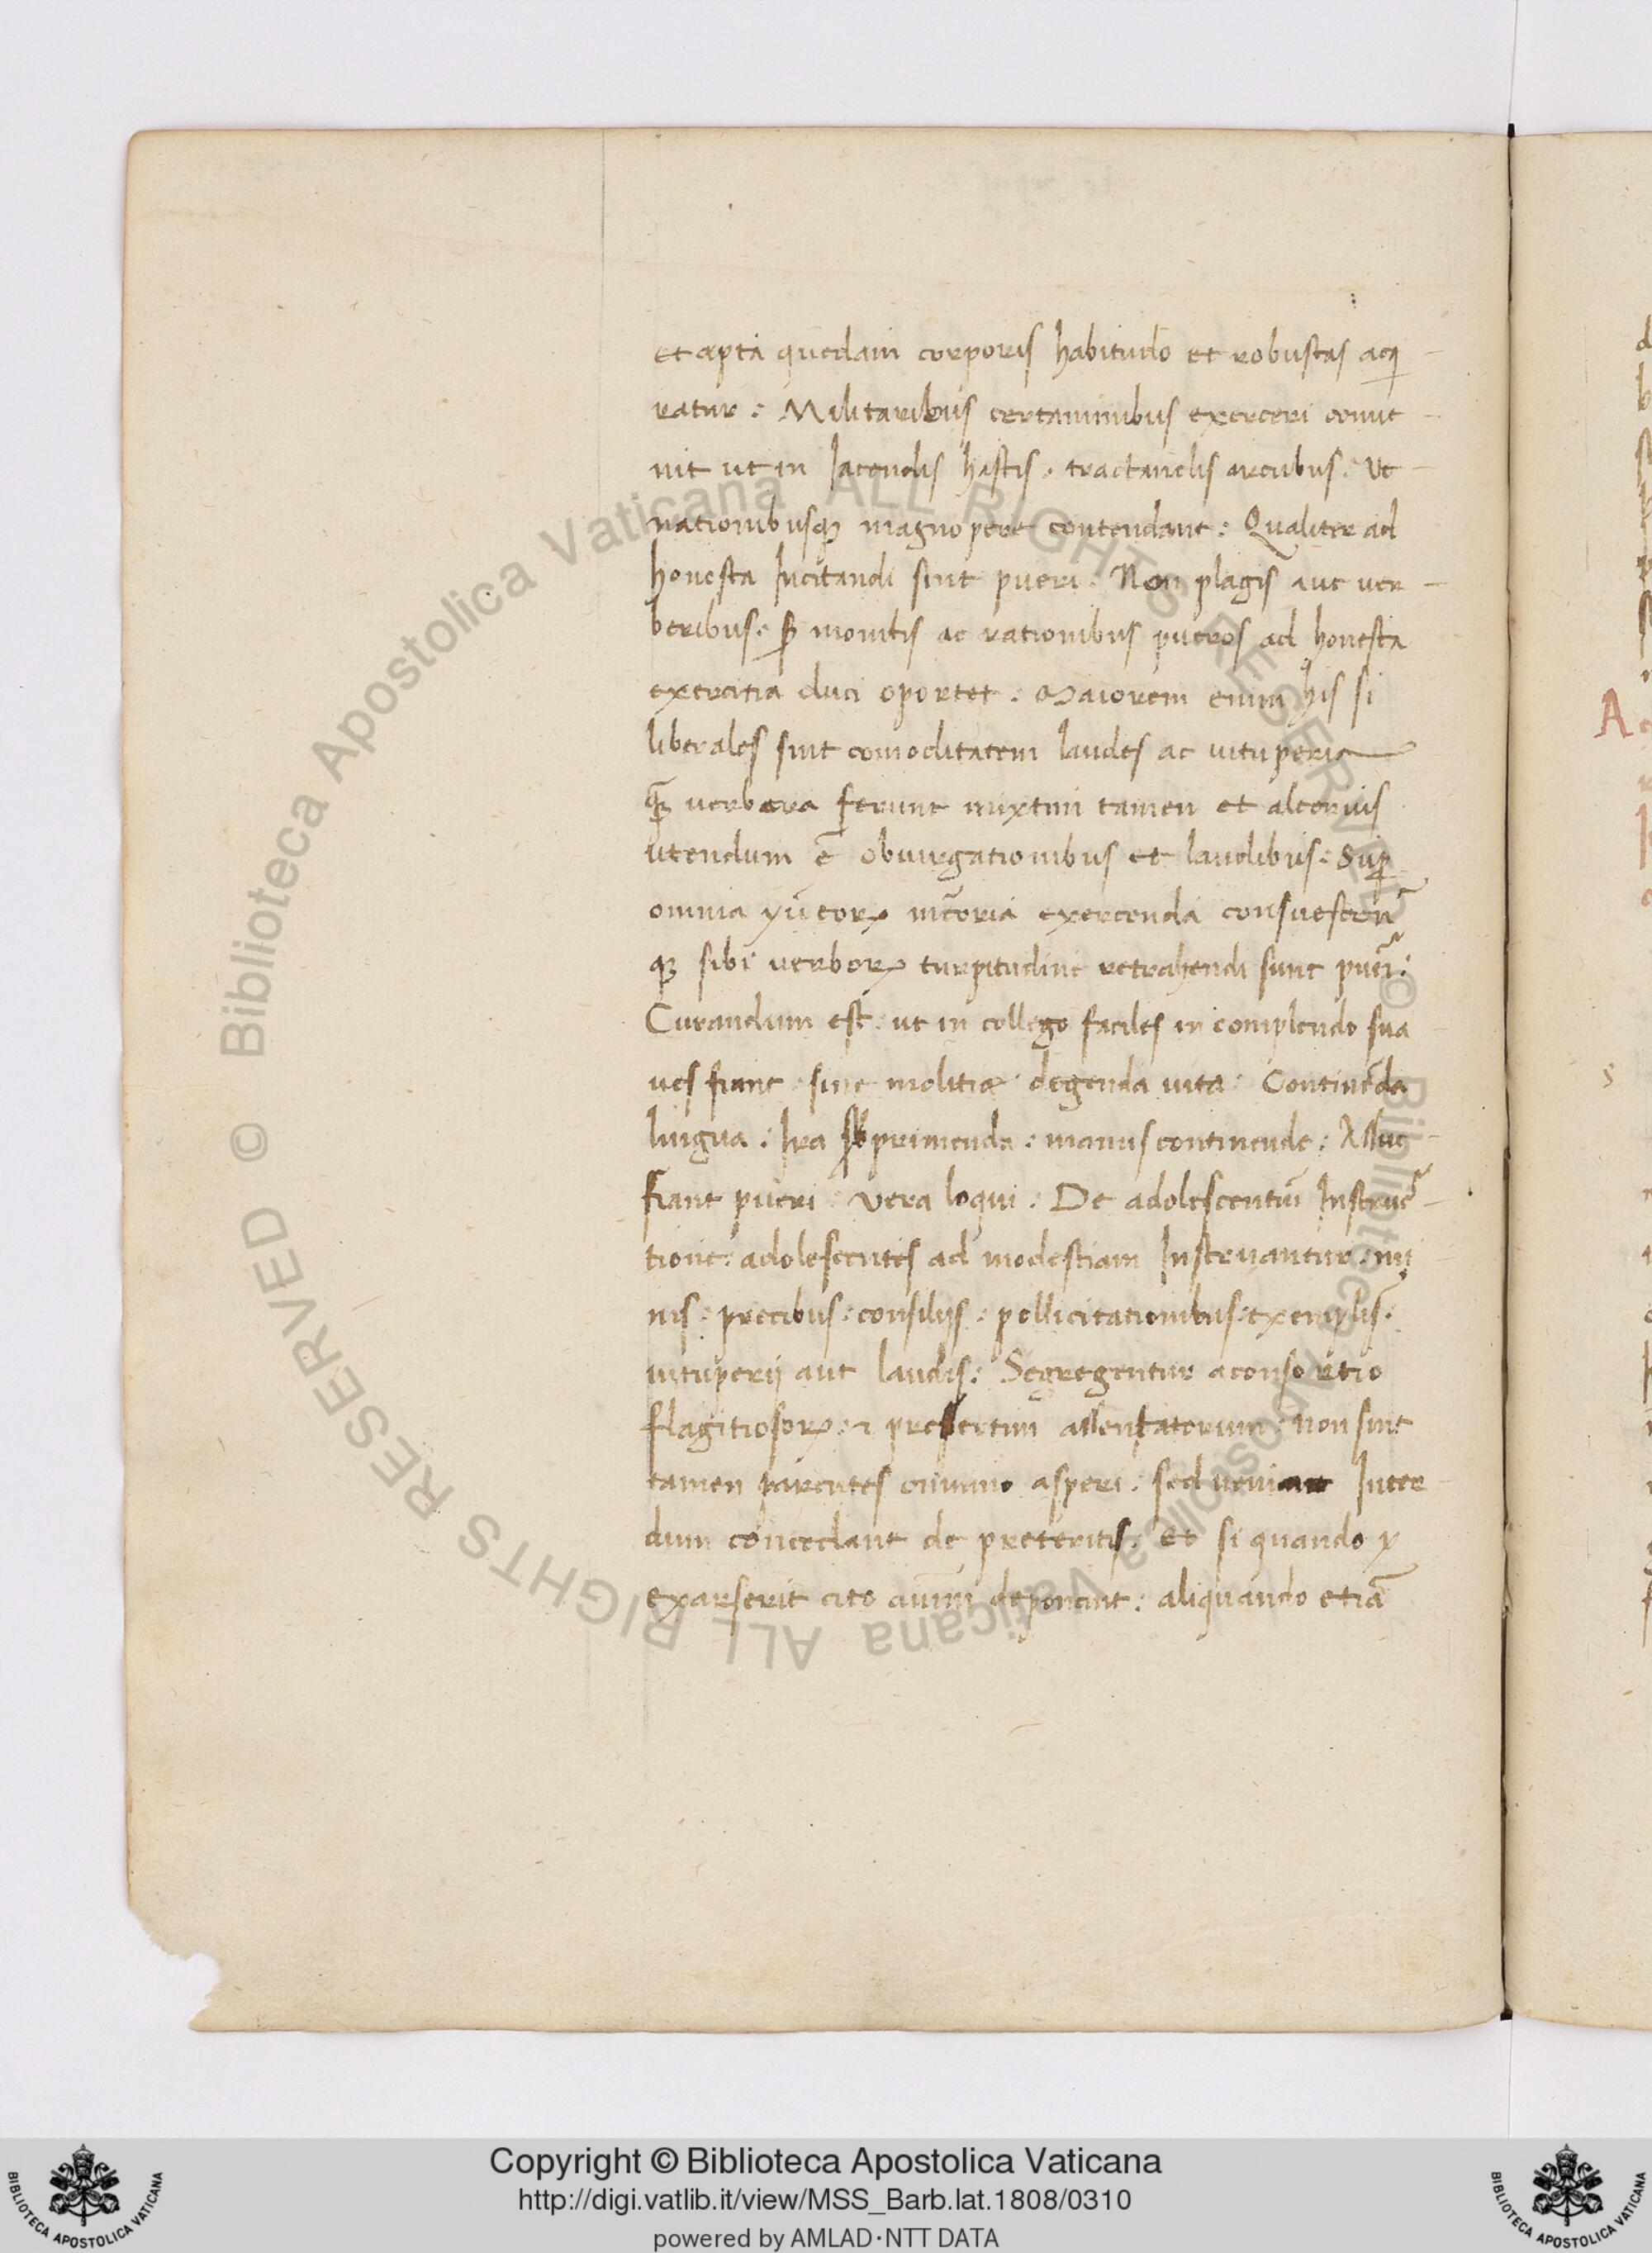 et apta quedam corporis habitudo et robustas acq
ratur : Militaribus certaminibus exerceri conue
nit ut in Iacendis hastis . tractandis arcubus . Ve
nationibusqꝫ magnopere contendant : Qualiter ad
honesta Incitandi sint pueri . Non plagis aut uer
beribus . sꝫ monitis ac rationibus pueros ad honesta
exercitia duci oportet . Maiorem enim his si
liberales sint comoditatem laudes ac uituperia
qꝫ verbera ferunt mixtim tamen et alterius
utendum ē obiurgationibus et laudibus : Sup
omnia memoria exercenda
qꝫ sibi verboꝝ turpitudine retrahendi sunt pueri :
Curandum est . ut in collego faciles in complendo sua
ues fiant . sine molitia degenda uita . Continēda
lingua : Ira primenda : manus continende : Assue
fiant pueri vera loqui . De adolescentum Instruc
tione . adolescentes ad modestiam Instruantur . mi
nis : precibus : consilijs : pollicitationibus : exemplis .
uituperij aut laudis : Segregentur aconsortio
flagitiosoꝝ . ⁊ presertim assentatorum . non sint
tamen parentes omnino asperi . sed veniam Inter
dum concedant de preteritis . Et si quando
exarserit cito deponant : aliquando etiā
A
s
© Biblioteca Apostolica Vaticana ALL RIGHTS RESERVED
© Biblioteca Apostolica Vaticana ALL RIGHTS RESERVED
Copyright © Biblioteca Apostolica Vaticana
http://digi.vatlib.it/view/MSS_Barb.lat.1808/0310
powered by AMLAD·NTT DATA
BIBLIOTECA APOSTOLICA VATICANA
BIBLIOTECA APOSTOLICA VATICANA